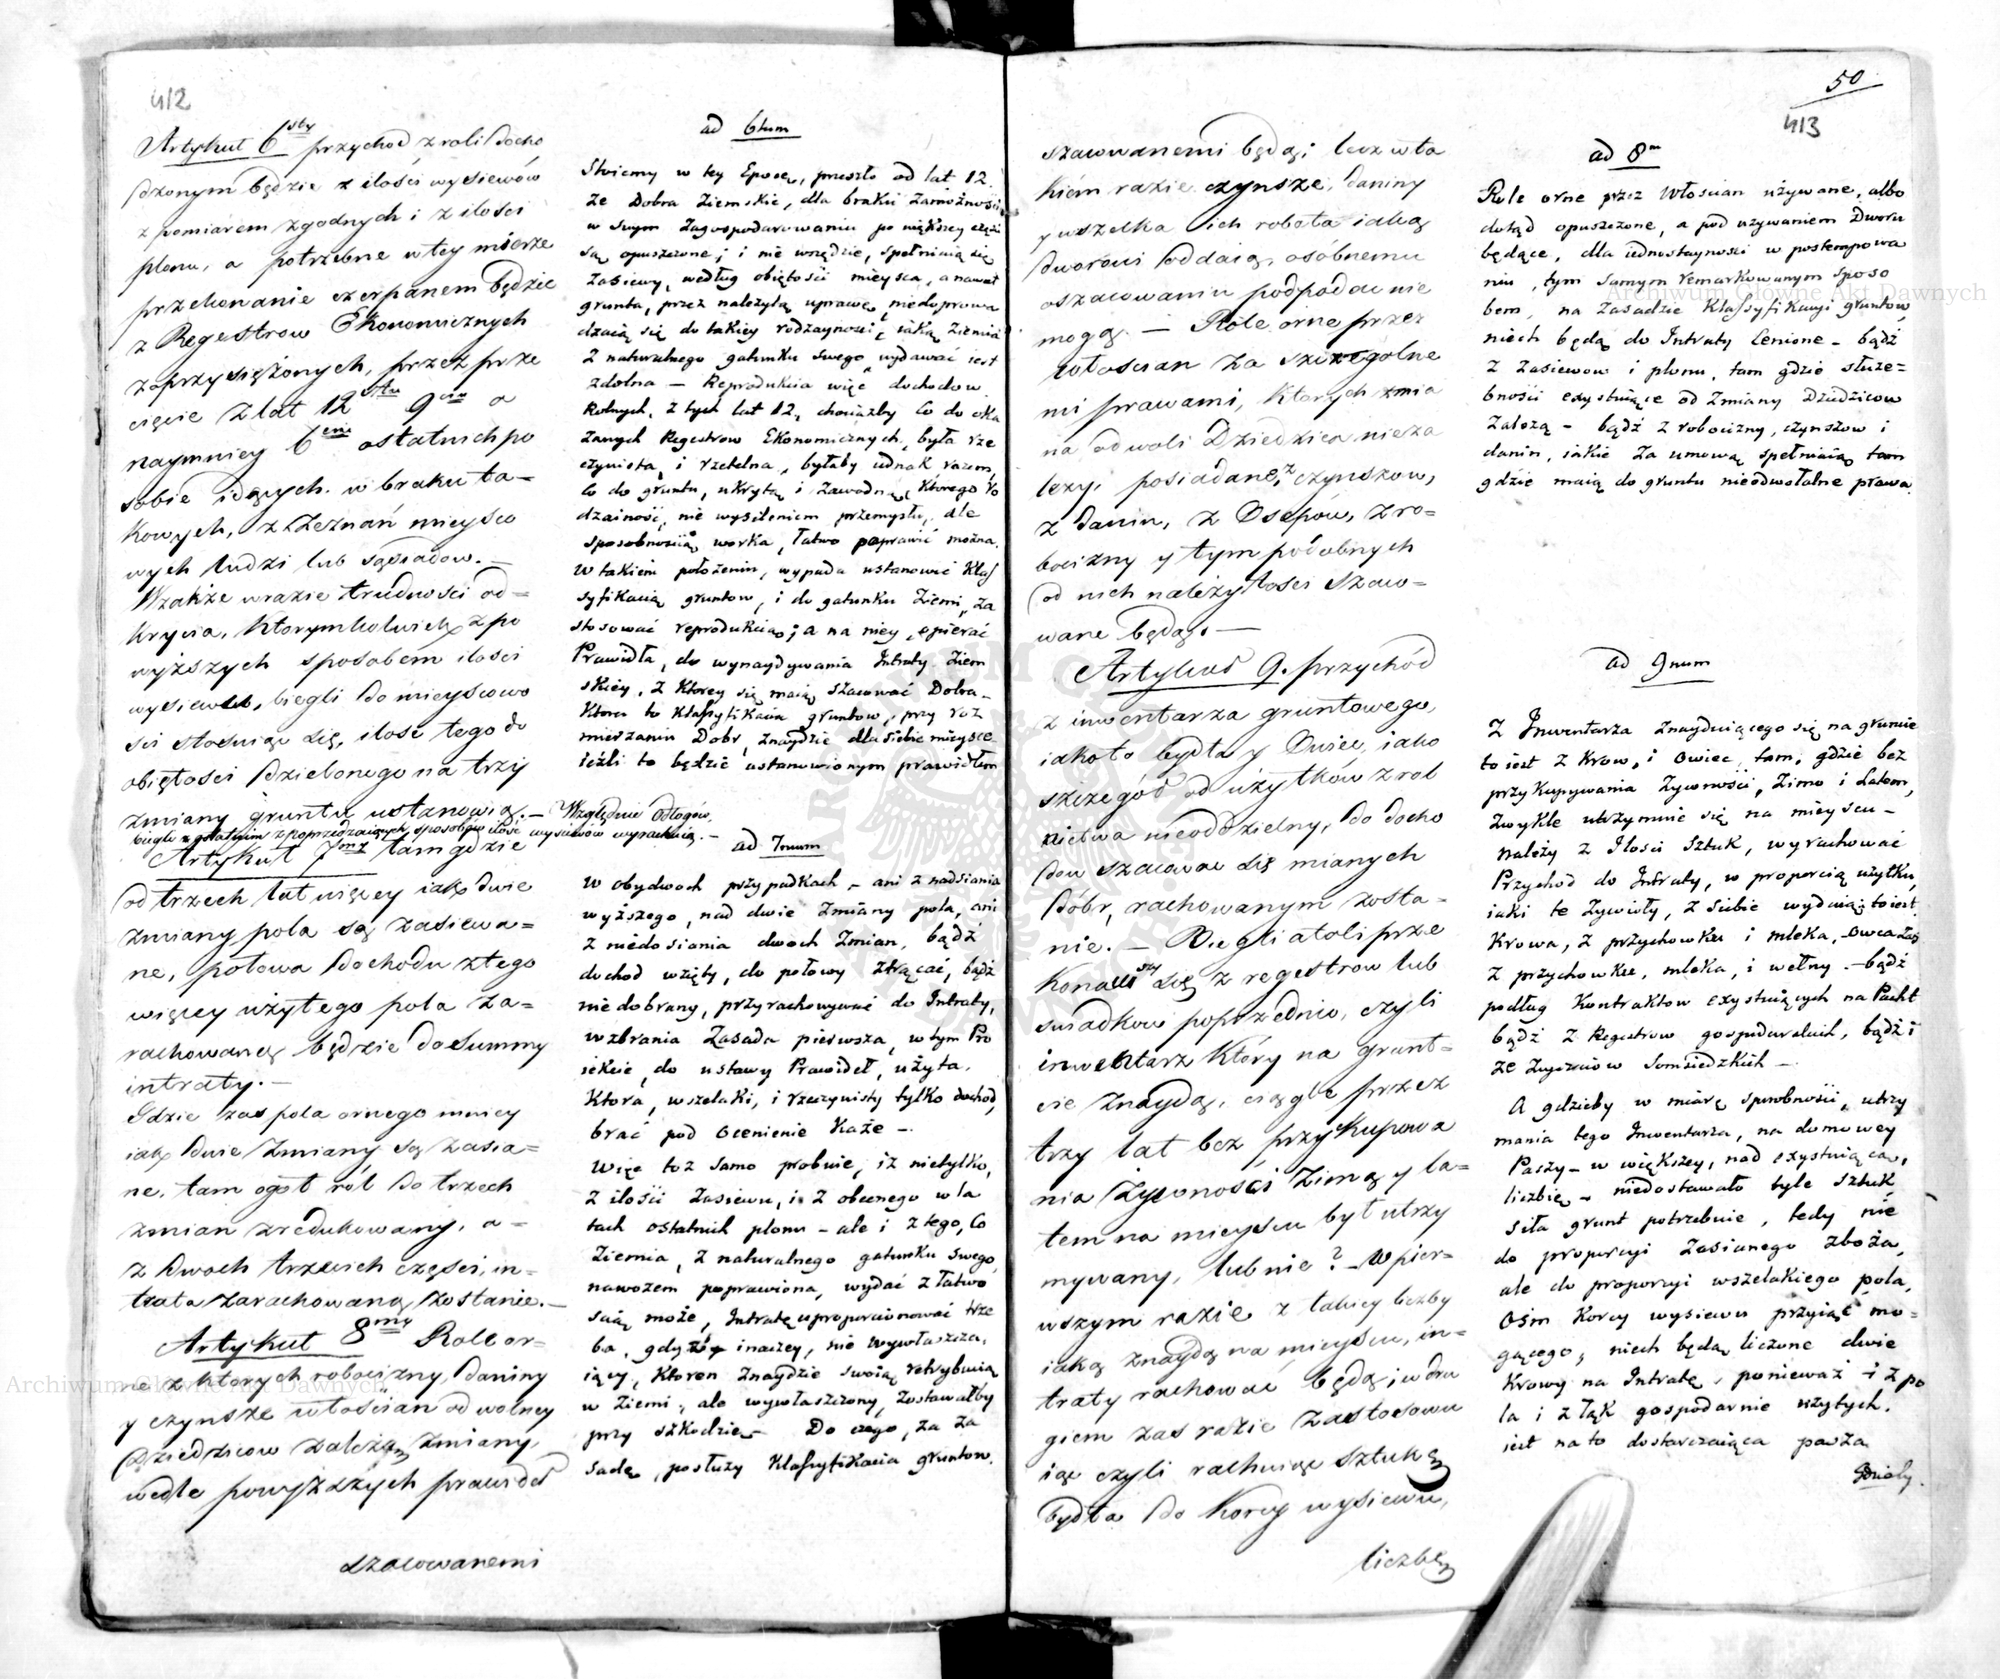 412
Artykuł 6sty przychod z roli docho
dzonym będzie z ilości wysiewów
z pomiarem zgodnych i z ilości
plonu, a potrzebne w tey mierze
przekonanie czerpanem będzie
z Regestrow Ekonomicznych
zaprzysiężonych, przez prze
cięcie z lat 12stu 9ciu a
naymniey 6ciu ostatnich po
sobie idących. w braku ta=
kowych, z Zeznań mieysco
wych ludzi lub sąsiadow. —
Wszakże w razie trudności od=
krycia, ktorymkolwiek z po
wyższych sposobem ilości
wysiewu, biegli do mieyscowo
ści stosuiąc się, ilość tego do
obiętości dzielonego na trzy
zmiany gruntu ustanowią. — Względnie Odłogów,
biegli z ostatnim z poprzedzaiących sposobów ilość wysiewów wyrachuią. —
Artykuł 7my tam gdzie
od trzech lat więcey iak dwie
zmiany pola są zasiewa=
ne, połowa dochodu z tego
więcey użytego pola za=
rachowaną będzie do summy
intraty. —
Gdzie zas pola ornego mniey
iak dwie zmiany są zasia=
ne, tam ogół ról do trzech
zmian zredukowany, a=
z dwoch trzecich części, in=
trata zarachowaną zostanie. —
Artykuł 8my Role or=
ne z ktorych robocizny, daniny
y czynsze włościan od wolney
Dziedzicow zależą zmiany,
wedle powyższych prawideł
szacowanemi
ad 6tum
Stoiemy w tey Epoce, przeszło od lat 12.
że Dobra Ziemskie, dla braku Zamożności
w swym Zagospodarowaniu po większey części
są opuszczone; i nie wszędzie, spełniaią się
Zasiewy, według obiętości mieysca, a nawet
grunta, przez należytą uprawę, niedoprowa
dzaią się do takiey rodzayności, iaką Ziemia
z naturalnego gatunku swego wydawać iest
zdolna — Reprodukcia więc dochodow
Rolnych, z tych lat 12, chociażby co do oka
zanych Regestrow Ekonomicznych, była rze
czywista, i rzetelna, byłaby iednak razem,
co do gruntu, ukrytą i zawodną, którego ro
dzainość, nie wysileniem przemysłu, ale
sposobnością worka, łatwo poprawić można.
W takiem położeniu, wypada ustanowić Klas
syfikacią gruntow, i do gatunku Ziemi, za
stosować reprodukcią; a na niey opierać
Prawidła, do wynaydywania Intraty Ziem
skiey, z ktorey się maią szacować Dobra —
Ktora to Klassyfikacia gruntow, przy roz
mierzaniu Dobr, znaydzie dla siebie mieysce
ieżli to będzie ustanowionym prawidłem
ad 7mum
W obydwoch przypadkach, — ani z nadsiania
wyższego, nad dwie Zmiany pola, ani
z niedosiania dwoch Zmian, bądź
dochod wzięty, do połowy strącać, bądź
nie dobrany, przyrachowywać do Intraty,
wzbrania Zasada pierwsza, w tym Pro
iekcie, do ustawy Prawideł, użyta.
Ktora, wszelaki, i rzeczywisty tylko dochod,
brać pod ocenienie każe —
Więc toż samo probuie, iż nietylko,
z ilości Zasiewu, i z obecnego w la
tach ostatnich plonu — ale i z tego, co
Ziemia, z naturalnego gatunku swego,
nawozem poprawiona, wydać z łatwo
scią może, Intratę uproporcionować trze
ba, gdyż inaczey, nie wywłaszcza,
iący, ktoren znaydzie swoią retrybucią
w Ziemi, ale wywłaszczony, zostawałby
przy szkodzie — Do czego, za za
sadę, posłuży Klassyfikacia gruntow.
50
413
szacowanemi będą; lecz w ta
kiém razie czynsze, daniny
y wszelka ich robota iaką
dworowi oddaią, osóbnemu
oszacowaniu podpadac nie
mogą. — Role orne przez
włościan za szczegolne
mi prawami, których zmia
na od woli Dziedzica nieza
leży, posiadane, z czynszow,
z danin, z Osepów, z ro=
bocizny y tym podobnych
od nich należytości szaco=
wane będą. —
Artykuł 9. przychód
z inwentarza gruntowego,
iakoto bydła y Owiec, iako
szczegół od użytków z rol
nictwa nieoddzielny, do docho
dow szacować się mianych
dóbr, rachowanym zosta=
nie. — Biegli atoli prze
konawszy się z regestrow lub
swiadkow poprzednio, czyli
inwentarz który na grunt=
cie znaydą, ciągle przez
trzy lat bez przykupowa
nia żywności zimą y la=
tem na mieyscu był utrzy
mywany, lub nie? — W pier=
wszym razie z takiey liczby
iaką znaydą na mieyscu, in=
traty rachować będą; w dru
giem zas razie zastosowu
iąc czyli rachuiąc sztukę
bydła do Korcy wysiewu,
liczbę
ad 8m
Role orne przez Włościan używane, albo
dotąd opuszczone, a pod używaniem Dworu
będące, dla iednostayności w postempowa
niu, tym samym remarkowanym sposo
bem, na Zasadzie Klassyfikacyi gruntow,
niech będą do Intraty Cenione — bądź
z zasiewow i plonu, tam gdzie służe=
bności exystuiące od zmiany Dziedzicow
zależą — bądź z robocizny, czynszow i
danin, iakie za umową spełniaią tam
gdzie maią do gruntu nieodwołalne prawa.
ad 9num
Z Inwentarza znayduiącego się na gruncie
to iest z Krow, i Owiec, tam, gdzie bez
przykupywania Żywności, Zimo i Latem,
zwykle utrzymuie się na mieyscu —
należy z Ilości sztuk, wyrachować
Przychod do Intraty, w proporcią użytku,
iaki te żywioły, z siebie wydaią: to iest.
Krowa, z przychowku i mleka, — Owca zaś
z przychowku, mleka, i wełny. — bądź
podług Kontraktow exystuiących na Pacht
bądź z Regestrow gospodarskich, bądź i
ze zwyczaiow Somsiedzkich —
A gdzieby w miarę sposobności, utrzy
mania tego Inwentarza, na domowey
Paszy — w większey, nad exystuiącą,
liczbie — niedostawało tyle sztuk
siła grunt potrzebuie, tedy nie
do proporcyi Zasianego zboża,
ale do proporcyi wszelakiego pola,
Ośm Korcy wysiewu przyiąć mo=
gącego, niech będą liczone dwie
Krowy na Intratę, ponieważ i z po
la i z łąk gospodarnie użytych.
iest na to dostarczaiąca pasza
Gdzieby.
Archiwum Główne Akt Dawnych
Archiwum Główne Akt Dawnych